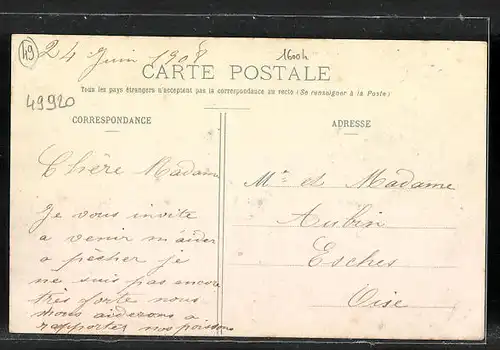 49
24 Juin 1908
1600h
CARTE POSTALE
Tous les pays étrangers n'acceptent pas la correspondance au recto (Se renseigner à la Poste)
49920
CORRESPONDANCE
ADRESSE
Chère Madame
Je vous invite
a venir m'aider
a pêcher je
ne suis pas encore
très forte nous
nous aiderons a
rapporter nos poissons
Mr et Madame
Aubin
Esches
Oise